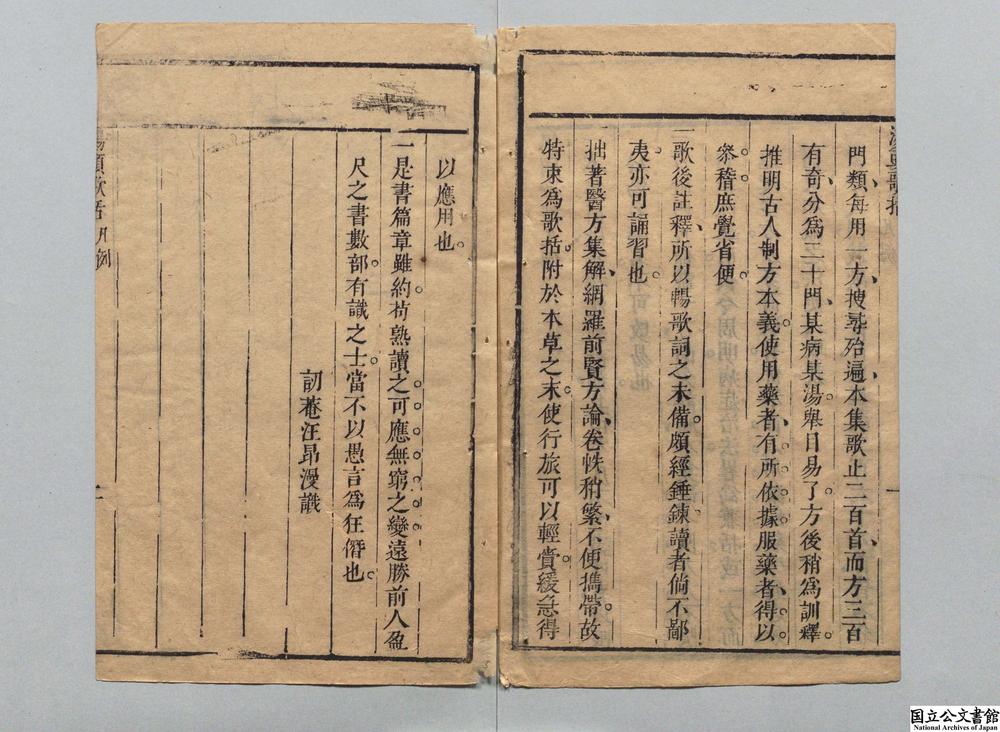 門類每用一方搜尋殆遍本集歌止二百首而方三百
有奇分爲二十門某病某湯舉目易了方後稍爲訓釋。
推明古人制方本義。使用藥者、有所依據。服藥者、得以
參稽。庶覺省便。
一歌後註釋、所以暢歌詞之未備。頗經錘鍊。讀者倘不鄙
夷。亦可誦習也。
一拙著醫方集解、網羅前賢方論、卷帙稍繁、不便攜帶。故
特束爲歌括。附於本草之末。使行旅可以輕賫。緩急得
以應用也。
一是書篇章雖約。苟熟讀之。可應無窮之變。遠勝前人盈
尺之書數部。有識之士。當不以愚言爲狂僭也。
訒菴汪昂漫識
湯頭歌括 凡例
国立公文書館
National Archives of Japan